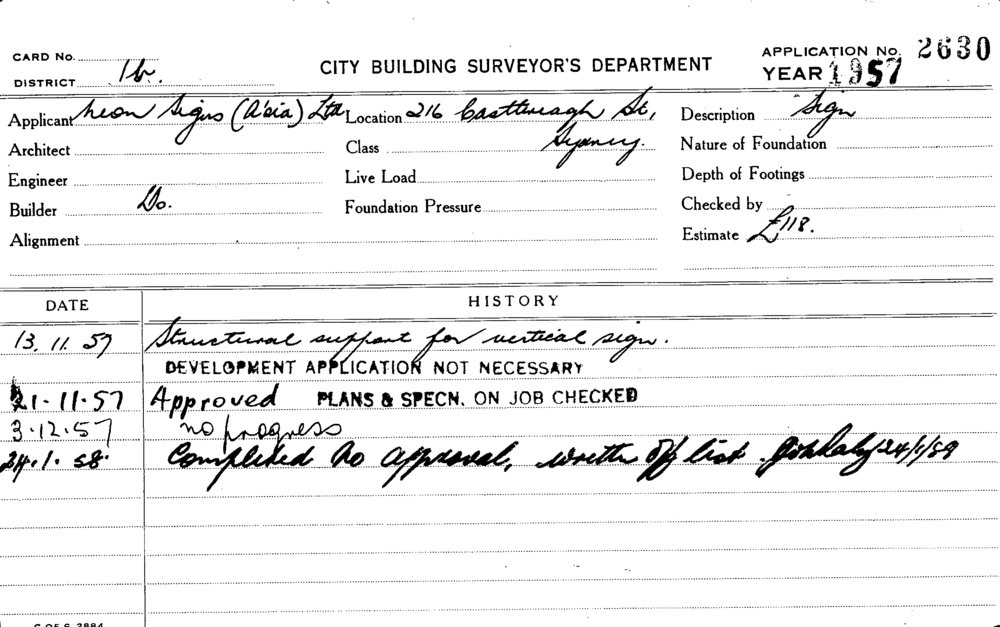 CARD No.
DISTRICT 1b.
CITY BUILDING SURVEYOR'S DEPARTMENT
APPLICATION No. 2630
YEAR 1957
Applicant Neon Signs (A'sia) Ltd
Location 216 Castlereagh St,
Description Sign
Architect
Class Sydney.
Nature of Foundation
Engineer
Live Load
Depth of Footings
Builder Do.
Foundation Pressure
Checked by
Alignment
Estimate £118.
DATE
HISTORY
13.11.57 Structural support for vertical sign.
DEVELOPMENT APPLICATION NOT NECESSARY
21.11.57 Approved PLANS & SPECN. ON JOB CHECKED
3.12.57 no progress
24.1.58. Completed to approval, written off list 24/1/58
C OF S 3884